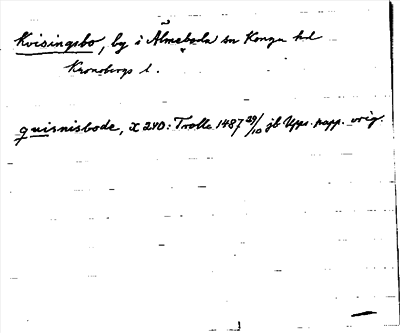 Kvisingsbo, by i Älmeboda sn Konga hd
Kronobergs l.
quisnisbode, X 240: Trolle 1487 29/10 jb Upps. papp. orig.